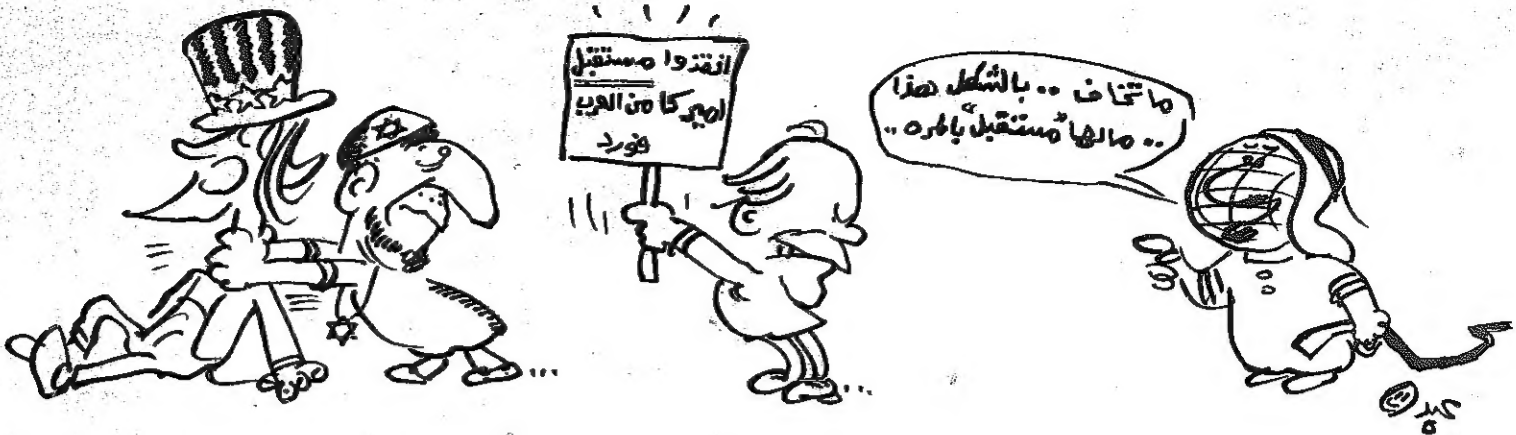 انقذوا مستقبل
اميركا من العرب
فورد
ماتخاف .. بالشكل هذا
.. مالها "مستقبل" بالمره ..